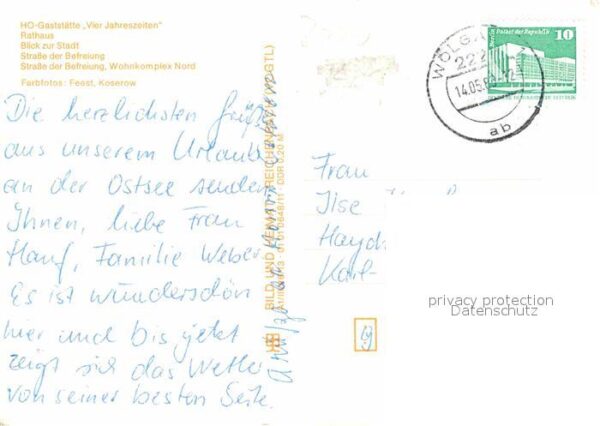 HO-Gaststätte „Vier Jahreszeiten"
Rathaus
Blick zur Stadt
Straße der Befreiung
Straße der Befreiung, Wohnkomplex Nord
Farbfotos: Feest, Koserow
Die herzlichsten Grüße
aus unserem Urlaub
an der Ostsee senden
Ihnen, liebe Frau
Hauf, Familie Weber.
Es ist wunderschön
hier und bis jetzt
zeigt sich das Wetter
von seiner besten Seite.
BILD UND HEIMAT REICHENBACH (VOGTL)
01 01 0648/11 DDR 0,20 M
WOLGA
222
14.05.8
ab
Palast der Republik
10
Frau
Ilse
Haydn
Karl-
privacy protection
Datenschutz